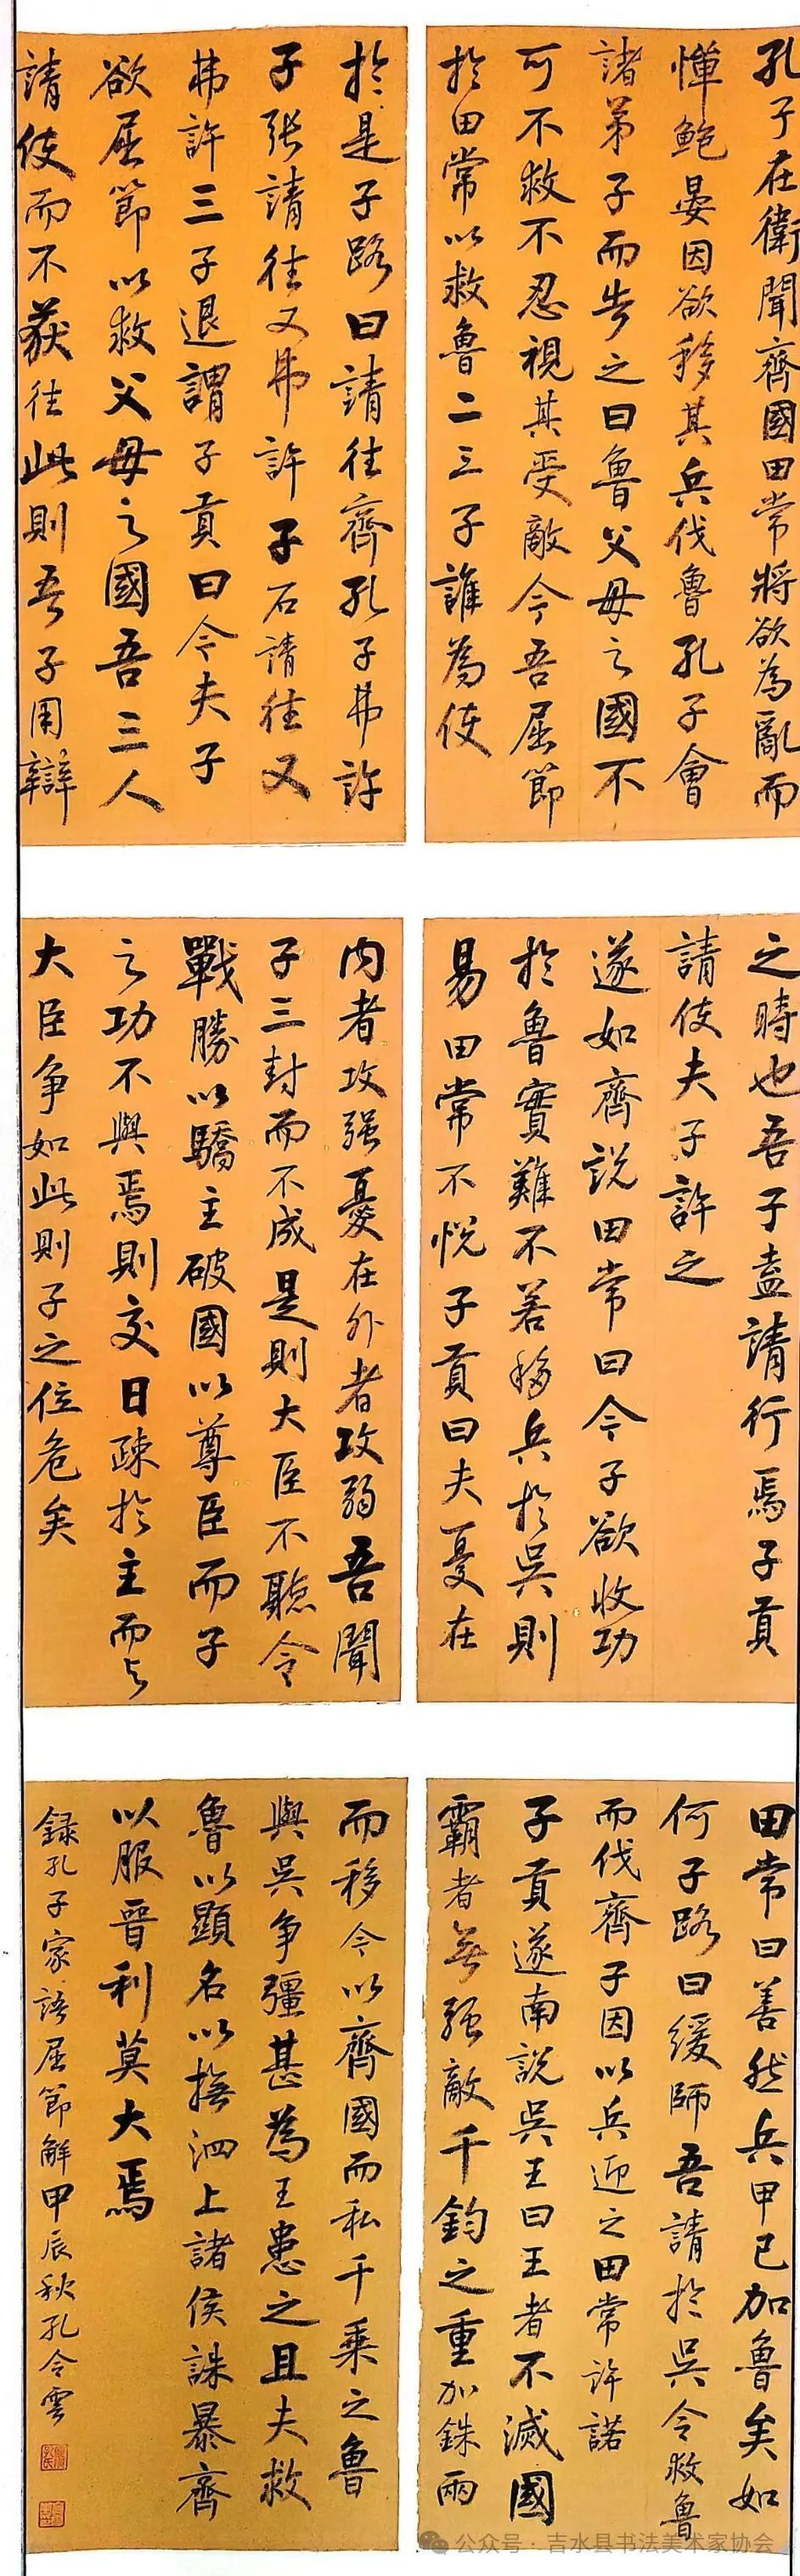 孔子在衛聞齊國田常將欲為亂而
憚鮑晏因欲移其兵伐魯孔子會
諸弟子而告之曰魯父母之國不
可不救不忍視其受敵今吾屈節
於田常以救魯二三子誰為使
於是子路曰請往齊孔子弗許
子張請往又弗許子石請往又
弗許三子退謂子貢曰今夫子
欲屈節以救父母之國吾三人
請使而不获往此則吾子用辯
之時也吾子盍請行焉子貢
請使夫子許之
遂如齊說田常曰今子欲收功
於魯實難不若移兵於吳則
易田常不悅子貢曰夫憂在
内者攻强憂在外者攻弱吾聞
子三封而不成是則大臣不聽令
戰勝以驕主破國以尊臣而子
之功不與焉則交日疎於主而与
大臣争如此則子之位危矣
田常曰善然兵甲已加魯矣如
何子路曰緩師吾請於吳令救魯
而伐齊子因以兵迎之田常許諾
子貢遂南說吳王曰王者不滅國
霸者無强敵千鈞之重加銖兩
而移今以齊國而私千乘之魯
與吳争彊甚為王患之且夫救
魯以顯名以撫泗上諸侯誅暴齊
以服晉利莫大焉
録孔子家語屈節解甲辰秋孔令雲
公众号·吉水县书法美术家协会